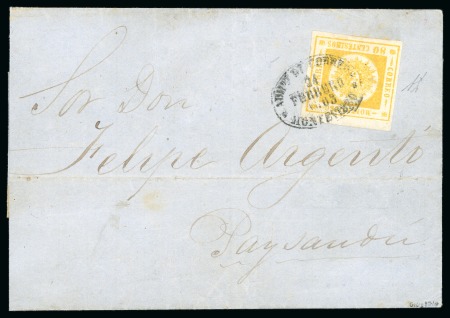 Sor Don
Felipe Argentó
Paysandú
CORREO
80 CENTESIMOS
ADMON DE CORREOS
FEBRERO
MONTEVIDEO